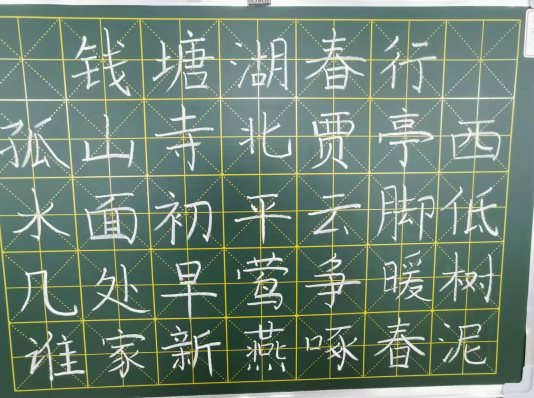 钱塘湖春行
孤山寺北贾亭西
水面初平云脚低
几处早莺争暖树
谁家新燕啄春泥